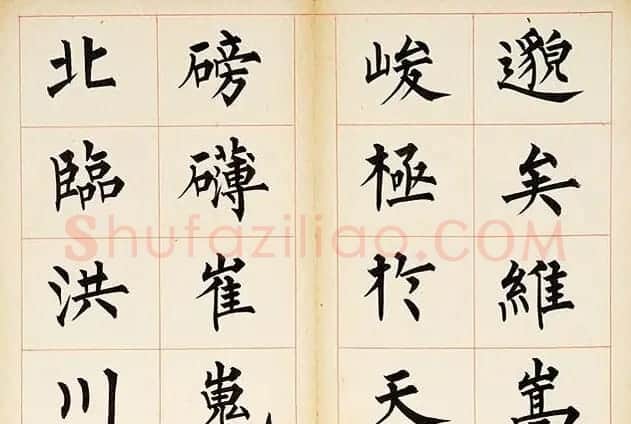 邈矣維嵩
峻極於天
磅礴崔嵬
北臨洪川
Shufaziliao.COM